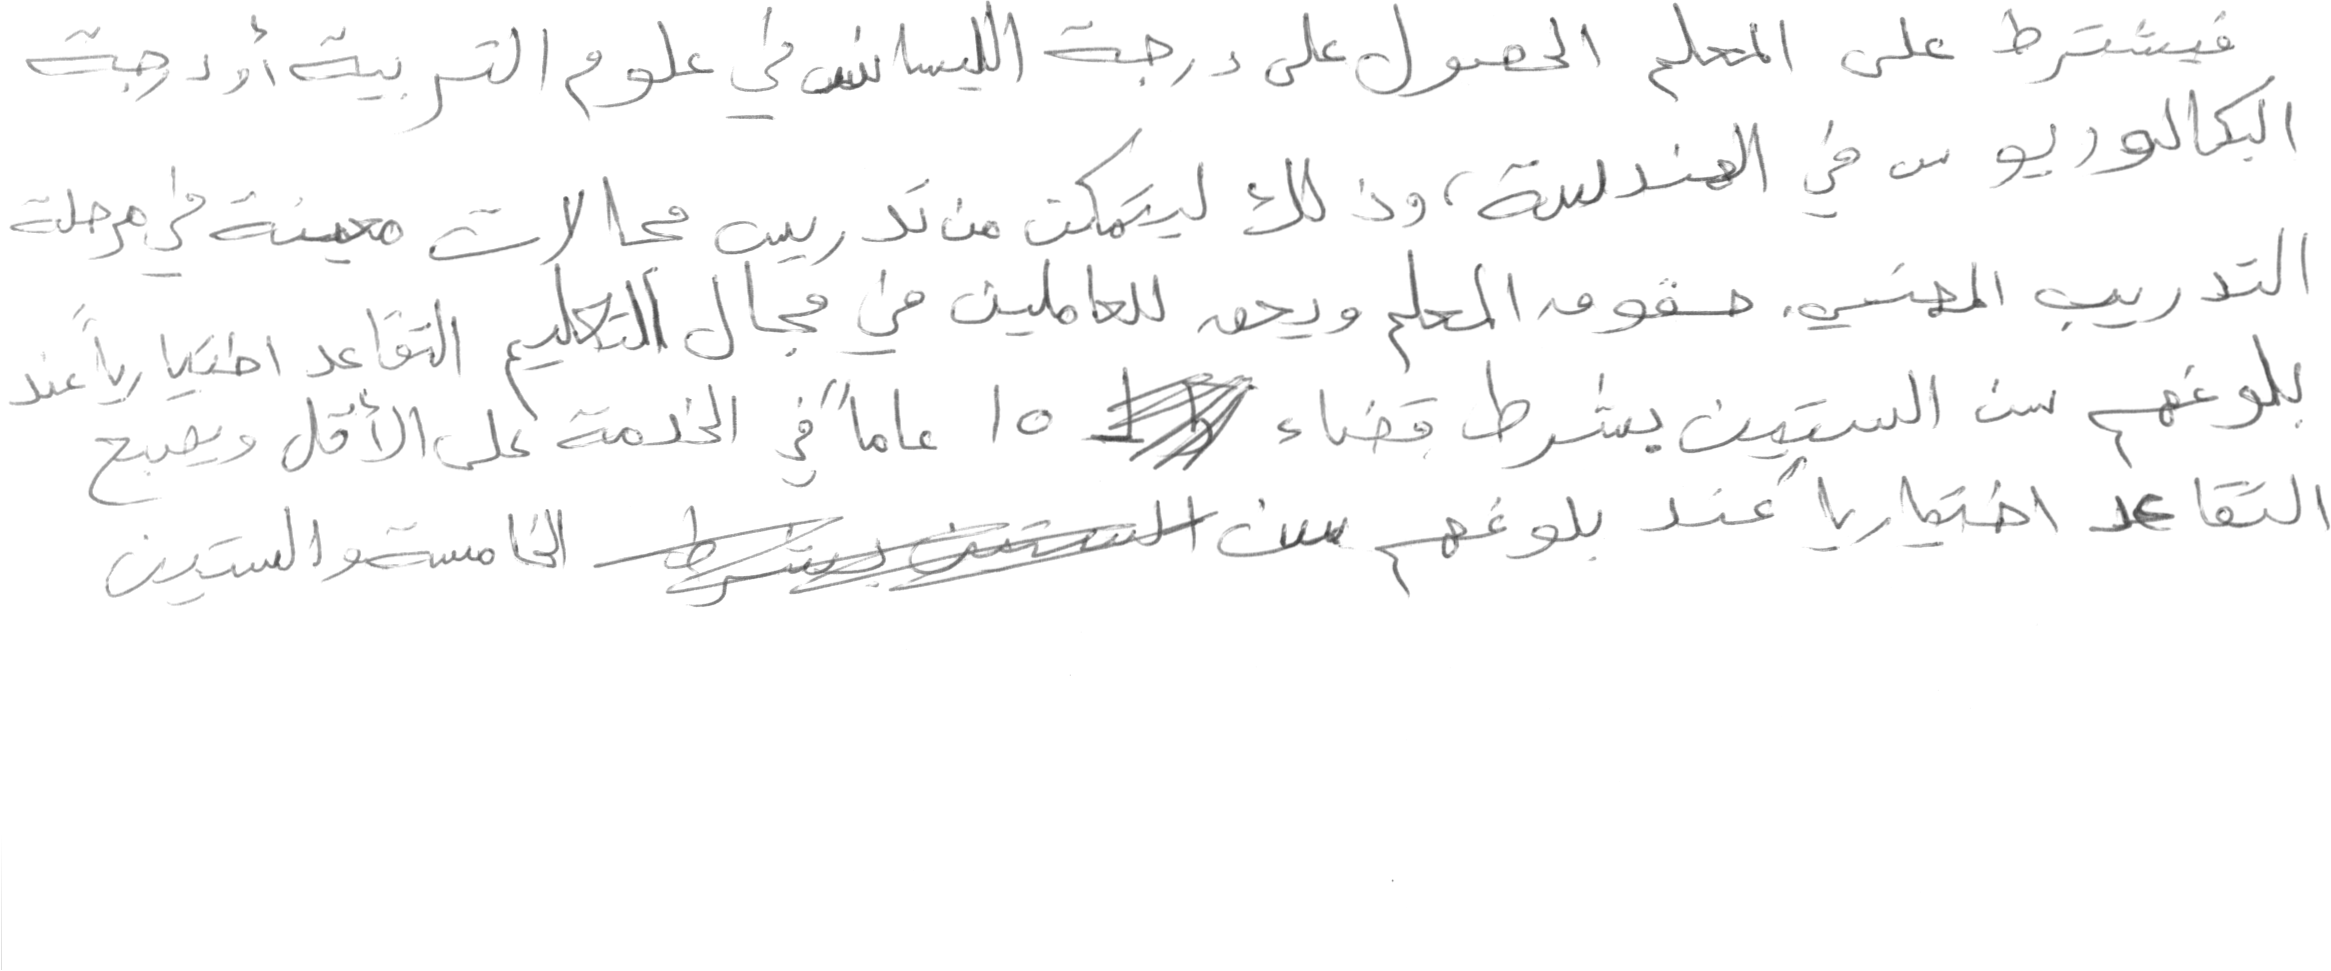 فيشترط على المعلم الحصول على درجة الليسانس في علوم التربية أو درجة
البكالوريوس في الهندسة، وذلك ليتمكن من تدريس مجالات معينة في مرحلة
التدريب المهني. حقوق المعلم ويحق للعاملين في مجال التعليم التقاعد اختيارياً عند
بلوغهم سن الستين بشرط قضاء ١٥ عاماً في الخدمة على الأقل ويصبح
التقاعد اختيارياً عند بلوغهم سن الخامسة والستين